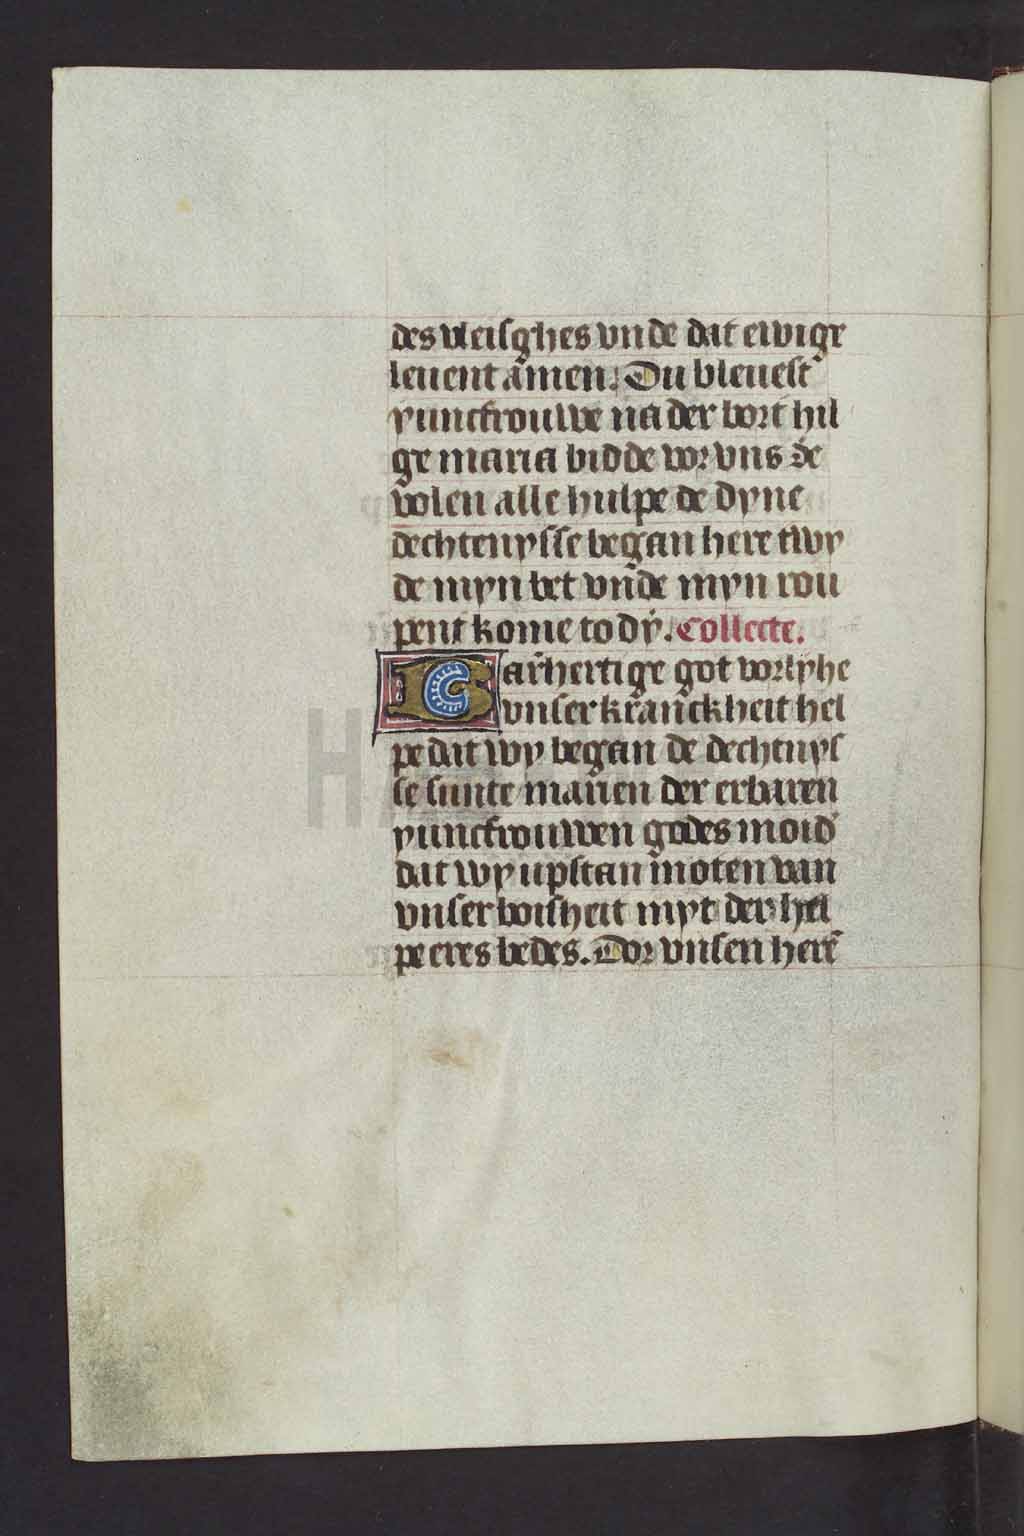 des vleisghes vnde dat ewige
leuent amen. Du bleuest
yuncfrouwe na der bort hil
ge maria bidde vor vns de
volen alle hulpe de dyne
dechtenysse began here twy
de myn bet vnde myn rou
pent kome to dy. Collecte.
Barhertige got vorlyhe
vnser kranckheit hel
pe dat wy began de dechtnys
se sunte marien der erbaren
yuncfrouwen godes moid
dat wy upstan moten van
vnser boisheit myt der hel
pe eres bedes. Dor vnsen here